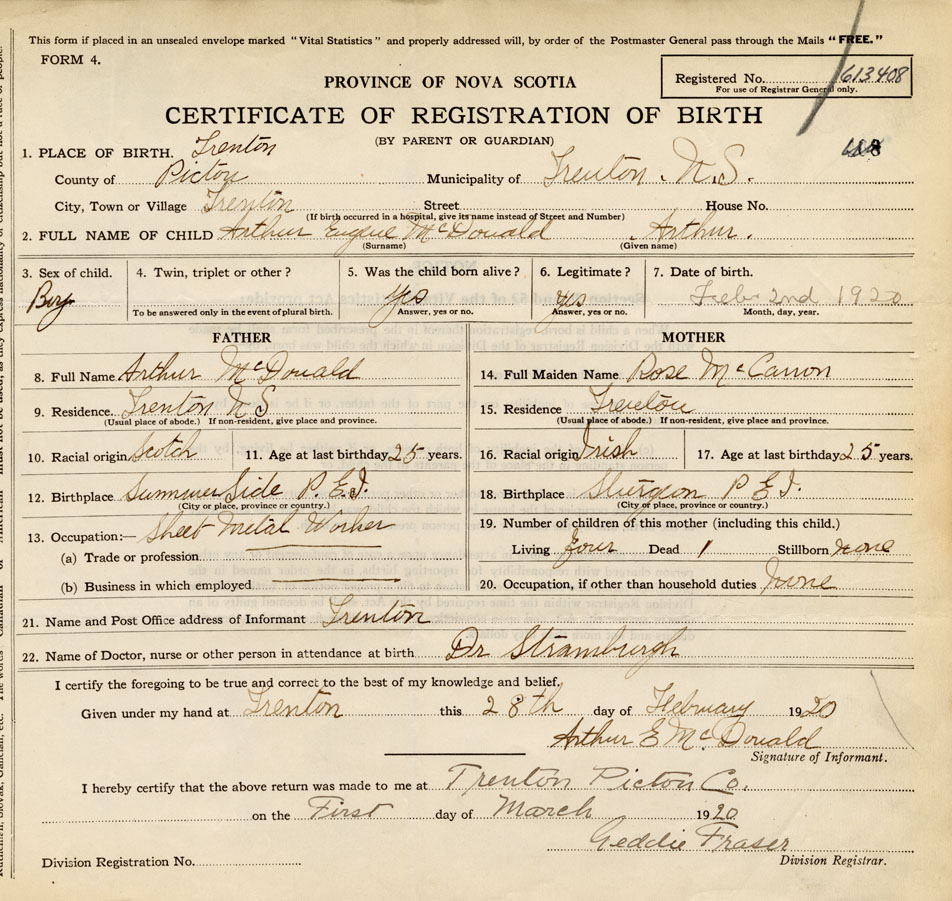 This form if placed in an unsealed envelope marked "Vital Statistics" and properly addressed will, by order of the Postmaster General pass through the Mails "FREE."
FORM 4.
Registered No. 613408
For use of Registrar General only.
PROVINCE OF NOVA SCOTIA
CERTIFICATE OF REGISTRATION OF BIRTH
(BY PARENT OR GUARDIAN)
1. PLACE OF BIRTH. Trenton
County of Picton Municipality of Trenton. N.S.
City, Town or Village Trenton Street House No.
(If birth occurred in a hospital, give its name instead of Street and Number)
2. FULL NAME OF CHILD Arthur Eugene McDonald Arthur.
(Surname) (Given name)
3. Sex of child. 4. Twin, triplet or other? 5. Was the child born alive? 6. Legitimate? 7. Date of birth.
Boy Yes yes Feb 2nd 1920
To be answered only in the event of plural birth. Answer, yes or no. Answer, yes or no. Month, day, year.
FATHER MOTHER
8. Full Name Arthur McDonald 14. Full Maiden Name Rose McCarron
9. Residence. Trenton N S 15. Residence Trenton
(Usual place of abode.) If non-resident, give place and province. (Usual place of abode.) If non-resident, give place and province.
10. Racial origin Scotch 11. Age at last birthday 25 years. 16. Racial origin Irish 17. Age at last birthday 25 years.
12. Birthplace Summer Side P. E. I. 18. Birthplace Sturgeon P E I.
(City or place, province or country.) (City or place, province or country.)
13. Occupation:— Sheet Metal Worker 19. Number of children of this mother (including this child.)
(a) Trade or profession Living four Dead 1 Stillborn none
(b) Business in which employed 20. Occupation, if other than household duties None
21. Name and Post Office address of Informant Trenton
22. Name of Doctor, nurse or other person in attendance at birth Dr Stramburgh
I certify the foregoing to be true and correct to the best of my knowledge and belief.
Given under my hand at Trenton this 28th day of February 1920
Arthur E McDonald
Signature of Informant.
I hereby certify that the above return was made to me at Trenton Picton Co.
on the First day of March 1920
Geddie Fraser
Division Registrar.
Division Registration No.